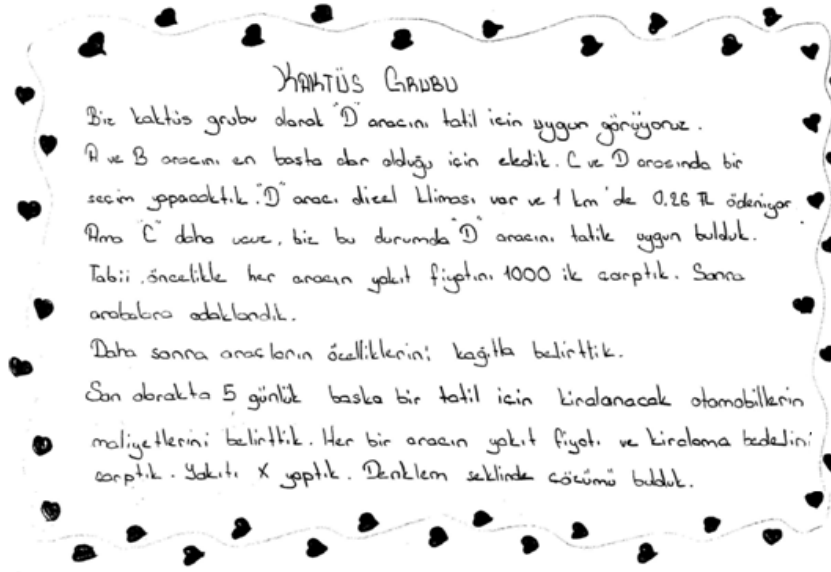 KAKTÜS GRUBU
Biz kaktüs grubu olarak "D" aracını tatil için uygun görüyoruz.
A ve B aracını en başta dar olduğu için eledik. C ve D arasında bir
seçim yapacaktık. "D" aracı dizel kliması var ve 1 km'de 0.26 TL ödeniyor
Ama "C" daha ucuz, biz bu durumda "D" aracını tatile uygun bulduk.
Tabii, öncelikle her aracın yakıt fiyatını 1000 ile çarptık. Sonra
arabalara odaklandık.
Daha sonra araçların özelliklerini kağıtta belirttik.
Son olarakta 5 günlük başka bir tatil için kiralanacak otomobillerin
maliyetlerini belirttik. Her bir aracın yakıt fiyatı ve kiralama bedelini
çarptık. Yakıtı X yaptık. Denklem şeklinde çözümü bulduk.